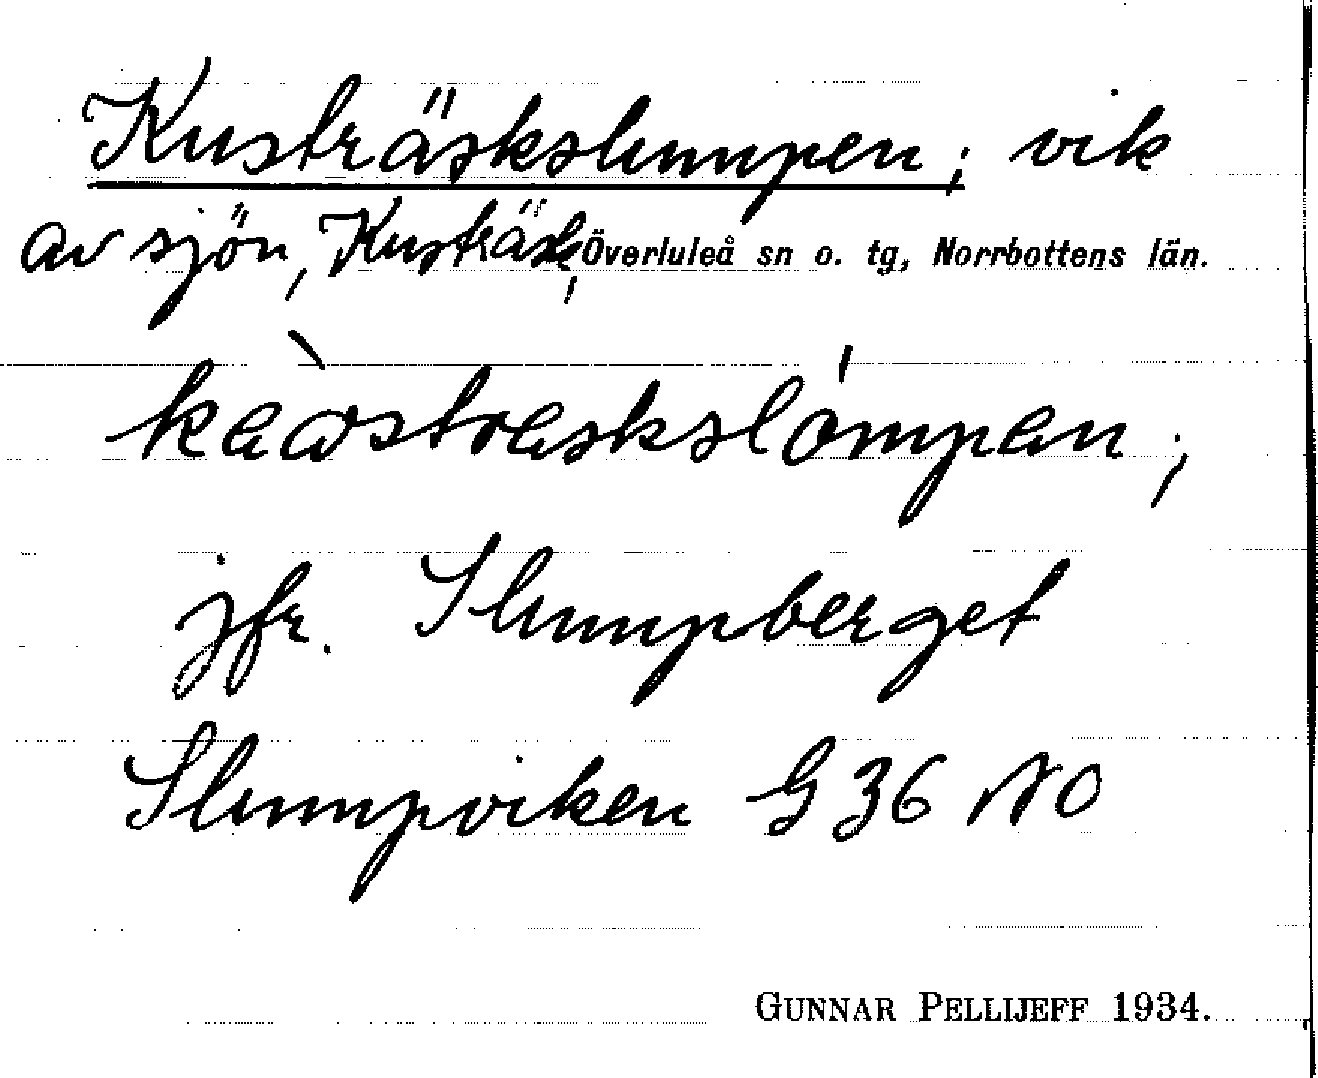 Kusträskslumpen; vik
av sjön, Kusträsk, Överluleå sn o. tg, Norrbottens län.
kèωstræskslómpan,
jfr. Slumpberget
Slumpviken G 36 NO
GUNNAR PELLIJEFF 1934.